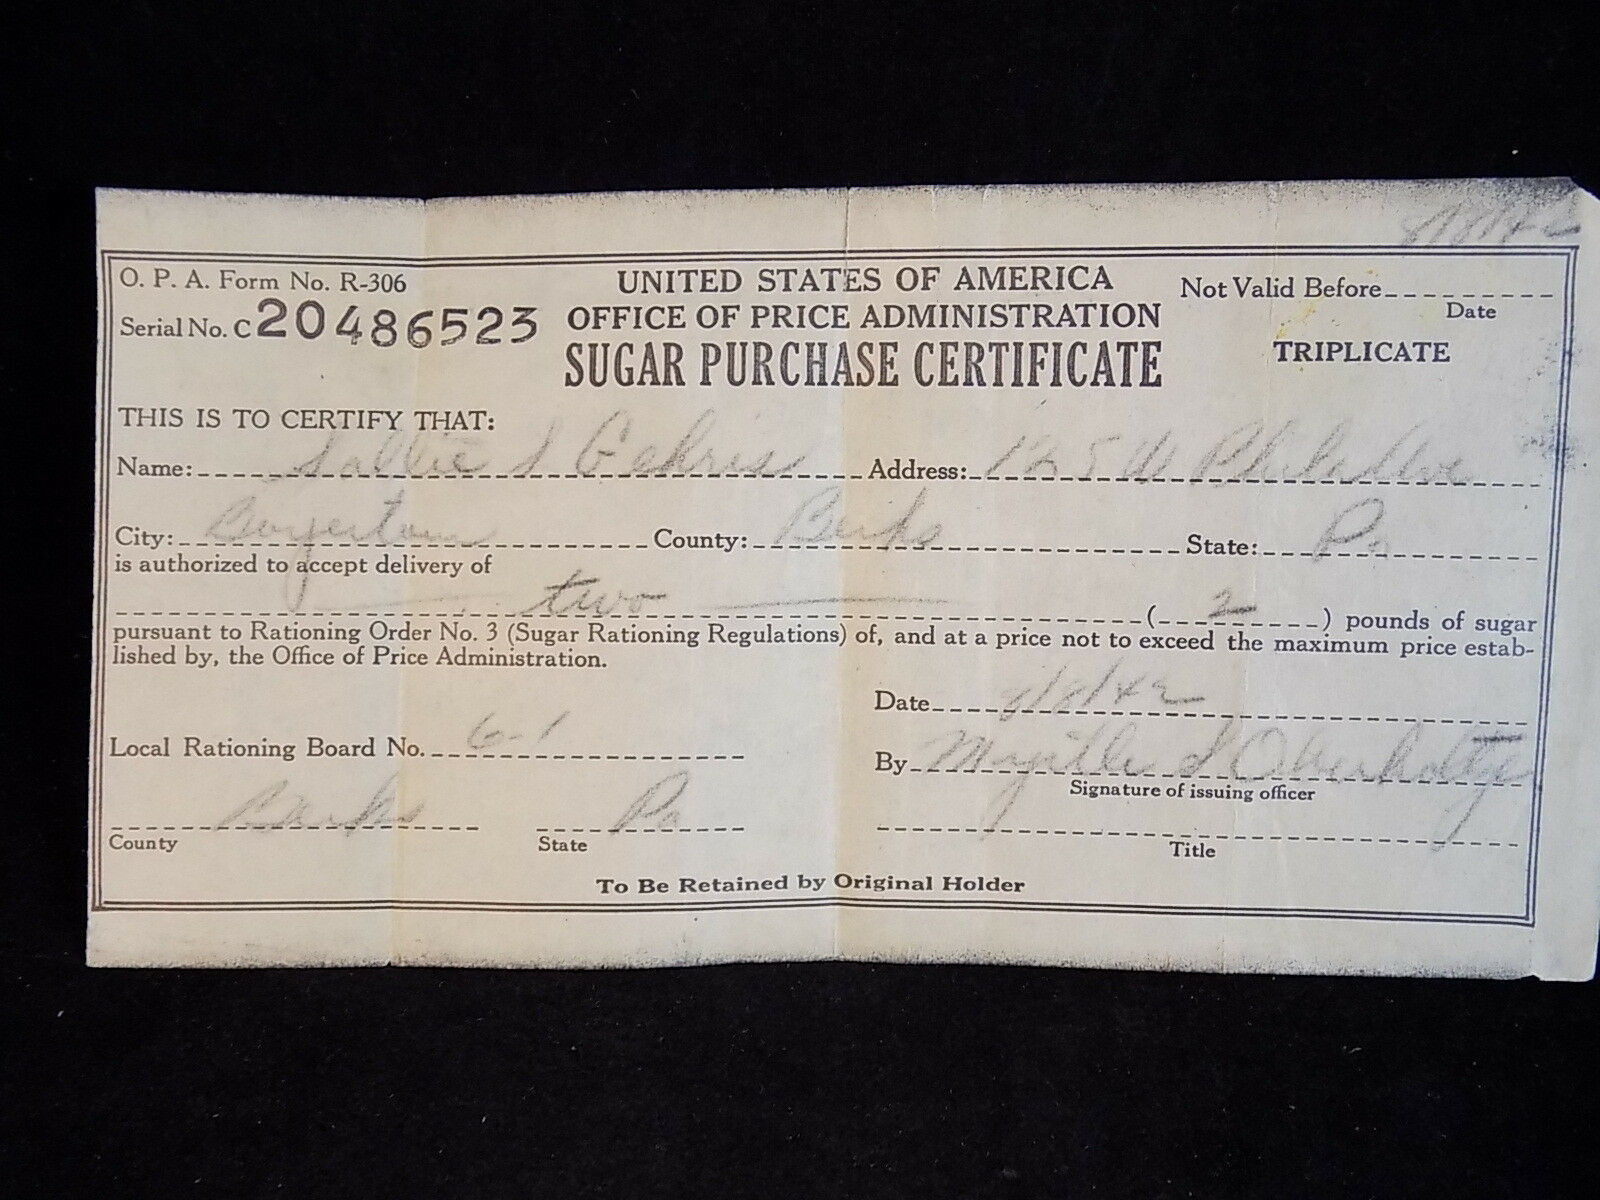 O. P. A. Form No. R-306
Serial No. C 20486523
UNITED STATES OF AMERICA
OFFICE OF PRICE ADMINISTRATION
SUGAR PURCHASE CERTIFICATE
Not Valid Before
Date
TRIPLICATE
THIS IS TO CERTIFY THAT:
Name: Sallie S Gehris Address: 125 W Phila Ave
City: Boyertown County: Berks State: Pa
is authorized to accept delivery of
two ( 2 ) pounds of sugar
pursuant to Rationing Order No. 3 (Sugar Rationing Regulations) of, and at a price not to exceed the maximum price estab-
lished by, the Office of Price Administration.
Date 8/8/42
Local Rationing Board No. 6-1
By Myrtle S Oberholtzer
Signature of issuing officer
Berks Pa
County State
Title
To Be Retained by Original Holder